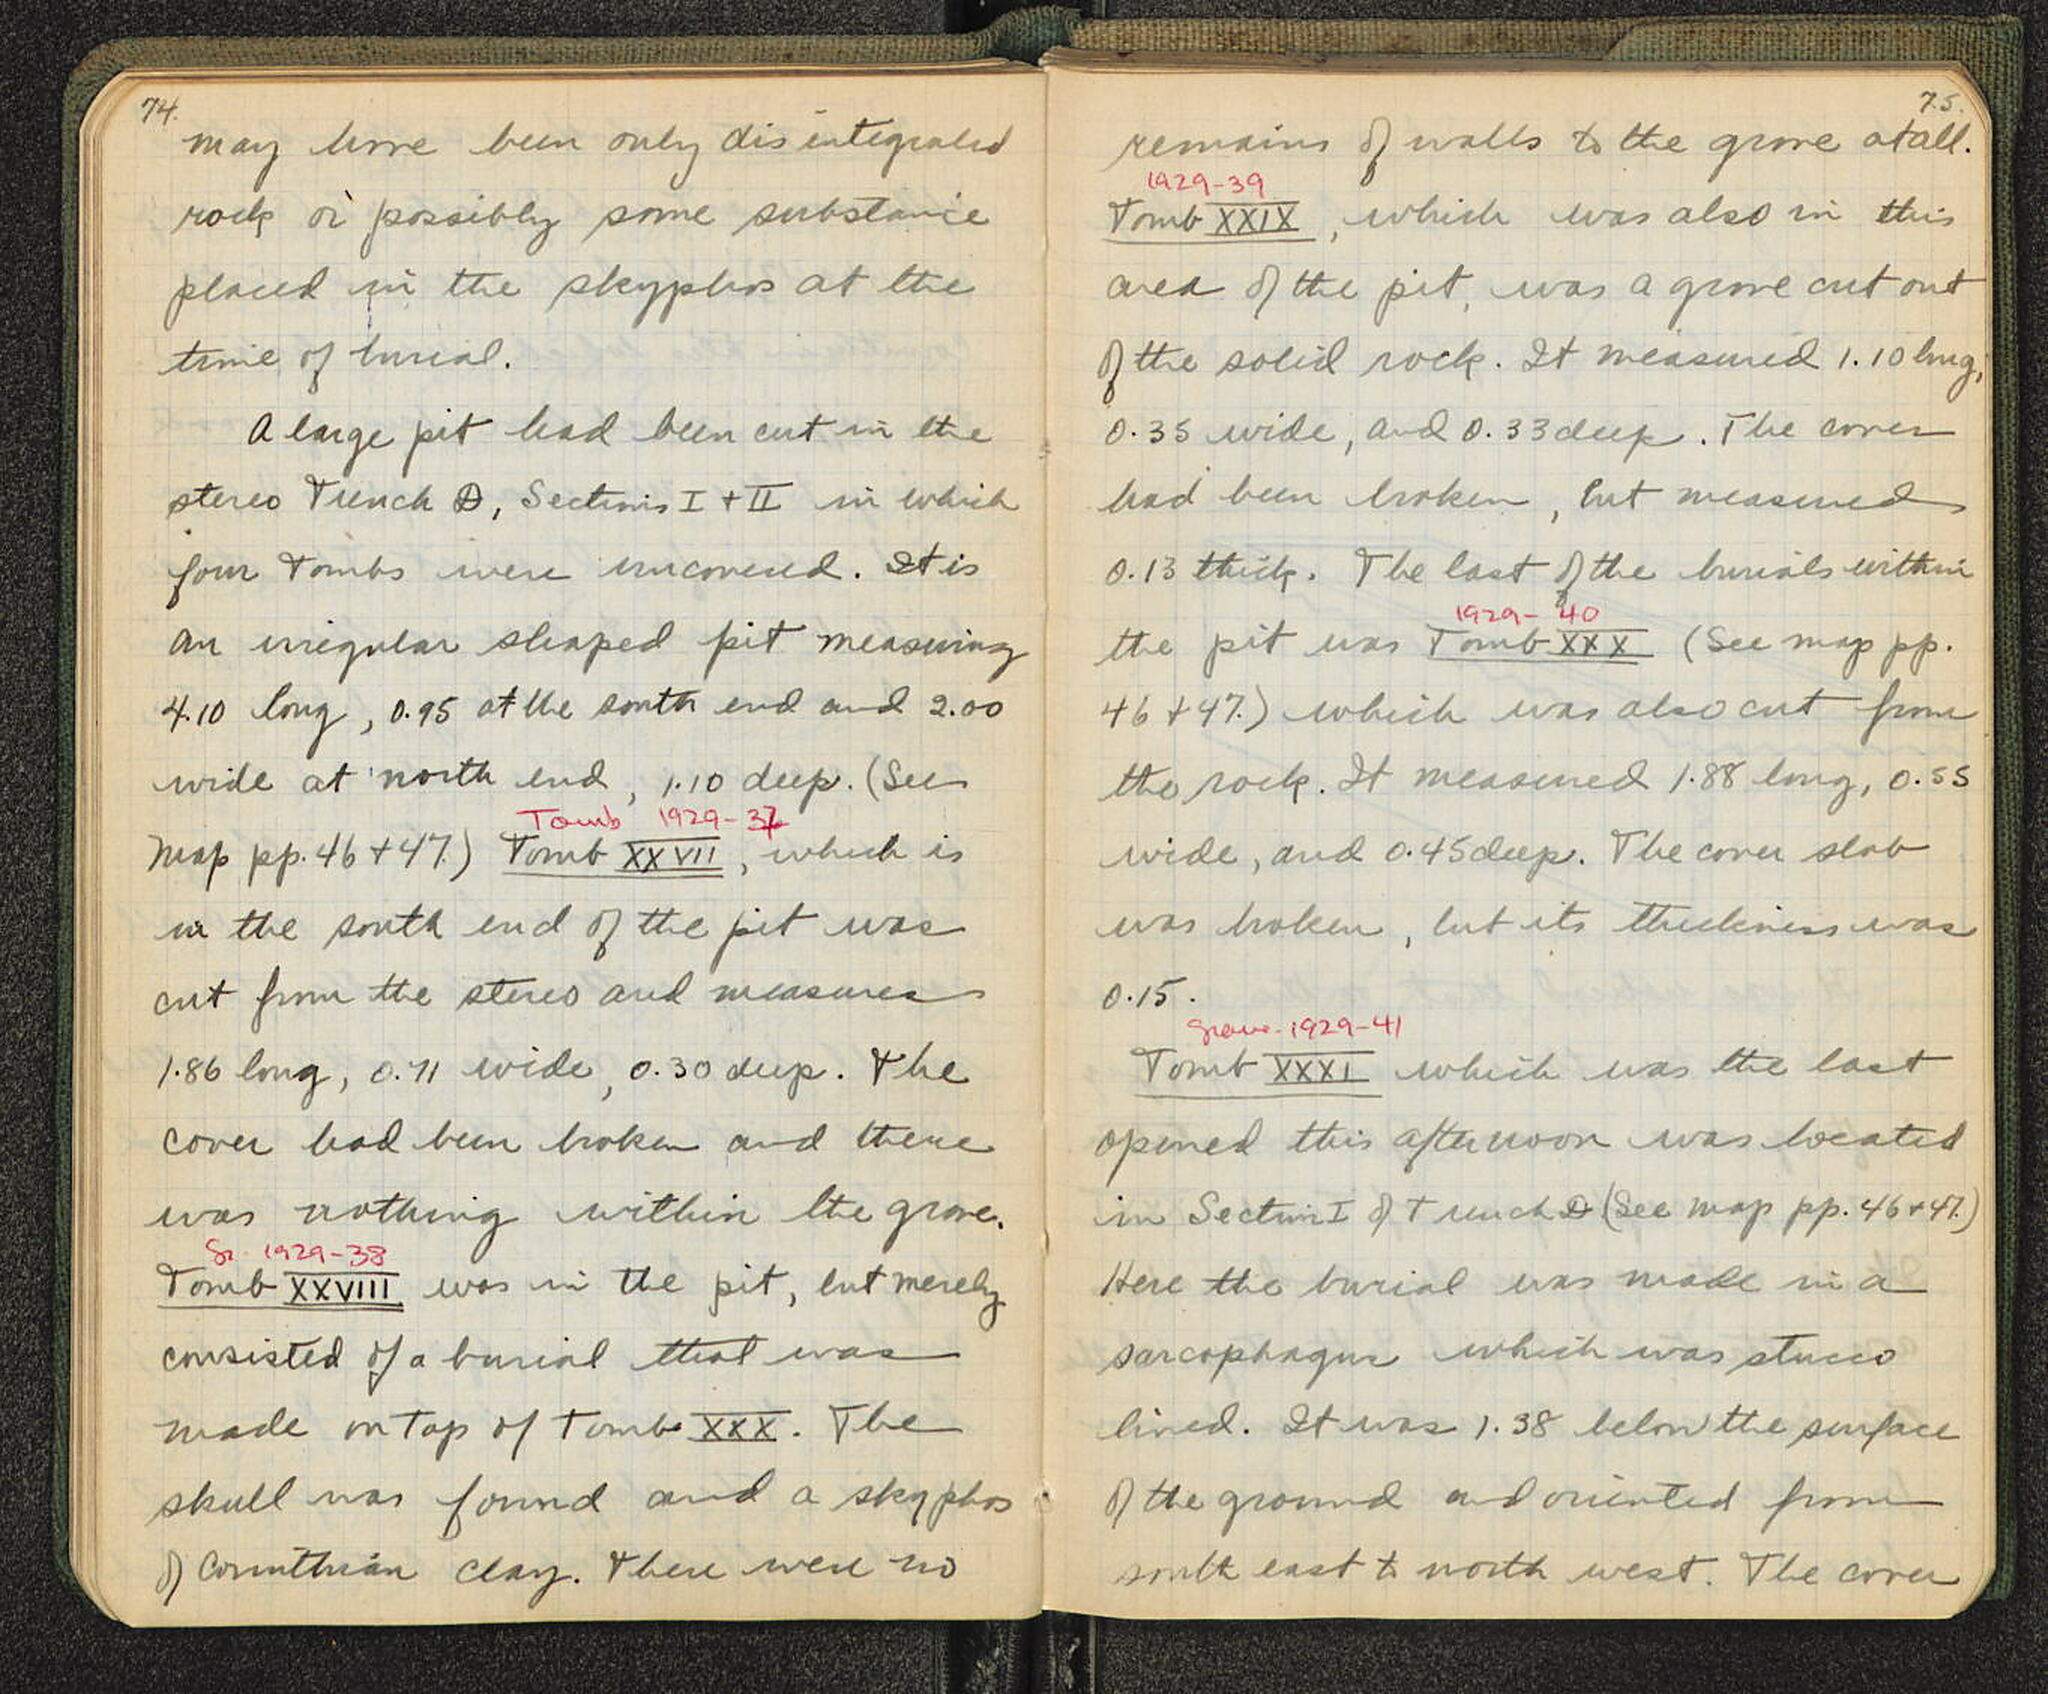 74.
may have been only disintegrated
rock or possibly some substance
placed in the skyphos at the
time of burial.
A large pit had been cut in the
stereo Trench D, Sections I + II in which
four Tombs were uncovered. It is
an irregular shaped pit measuring
4.10 long, 0.95 at the south end and 2.00
wide at north end, 1.10 deep. (See
Tomb 1929-37
Map pp. 46 + 47.) Tomb XXVII, which is
in the south end of the pit was
cut from the stereo and measures
1.86 long, 0.71 wide, 0.30 deep. The
cover had been broken and there
was nothing within the grave.
Gr. 1929-38
Tomb XXVIII was in the pit, but merely
consisted of a burial that was
made on top of Tomb XXX. The
skull was found and a skyphos
of Corinthian clay. There were no
75.
remains of walls to the grave at all.
1929-39
Tomb XXIX, which was also in this
area of the pit, was a grave cut out
of the solid rock. It measured 1.10 long,
0.35 wide, and 0.33 deep. The cover
had been broken, but measured
0.13 thick. The last of the burials within
1929-40
the pit was Tomb XXX (See map pp.
46 + 47.) which was also cut from
the rock. It measured 1.88 long, 0.55
wide, and 0.45 deep. The cover slab
was broken, but its thickness was
0.15.
Grave 1929-41
Tomb XXXI which was the last
opened this afternoon was located
in Section I of Trench D (See map pp. 46 + 47.)
Here the burial was made in a
sarcophagus which was stucco
lined. It was 1.38 below the surface
of the ground and oriented from
south east to north west. The cover